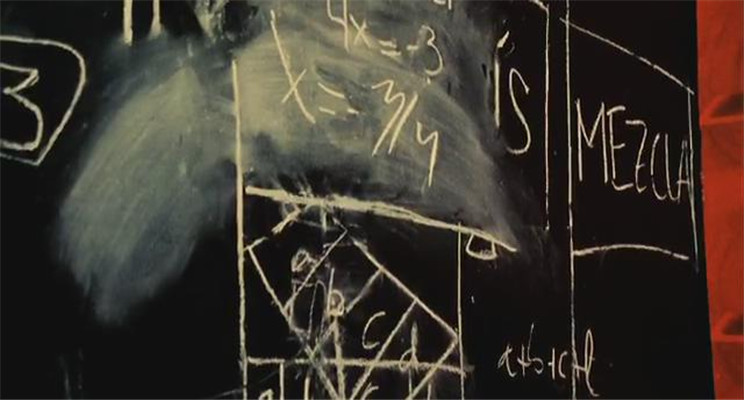 3
4x = -3
x = - 3/4
is
MEZCLA
a
b
c
d
a+b+c+d